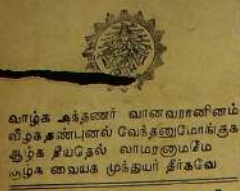 வாழ்க அந்தணர் வானவரானினம்
வீழ்க தண்புனல் வேந்தனுமோங்குக
ஆழ்க தீயதெல் லாமரனாமமே
சூழ்க வையக முந்துயர் தீர்கவே